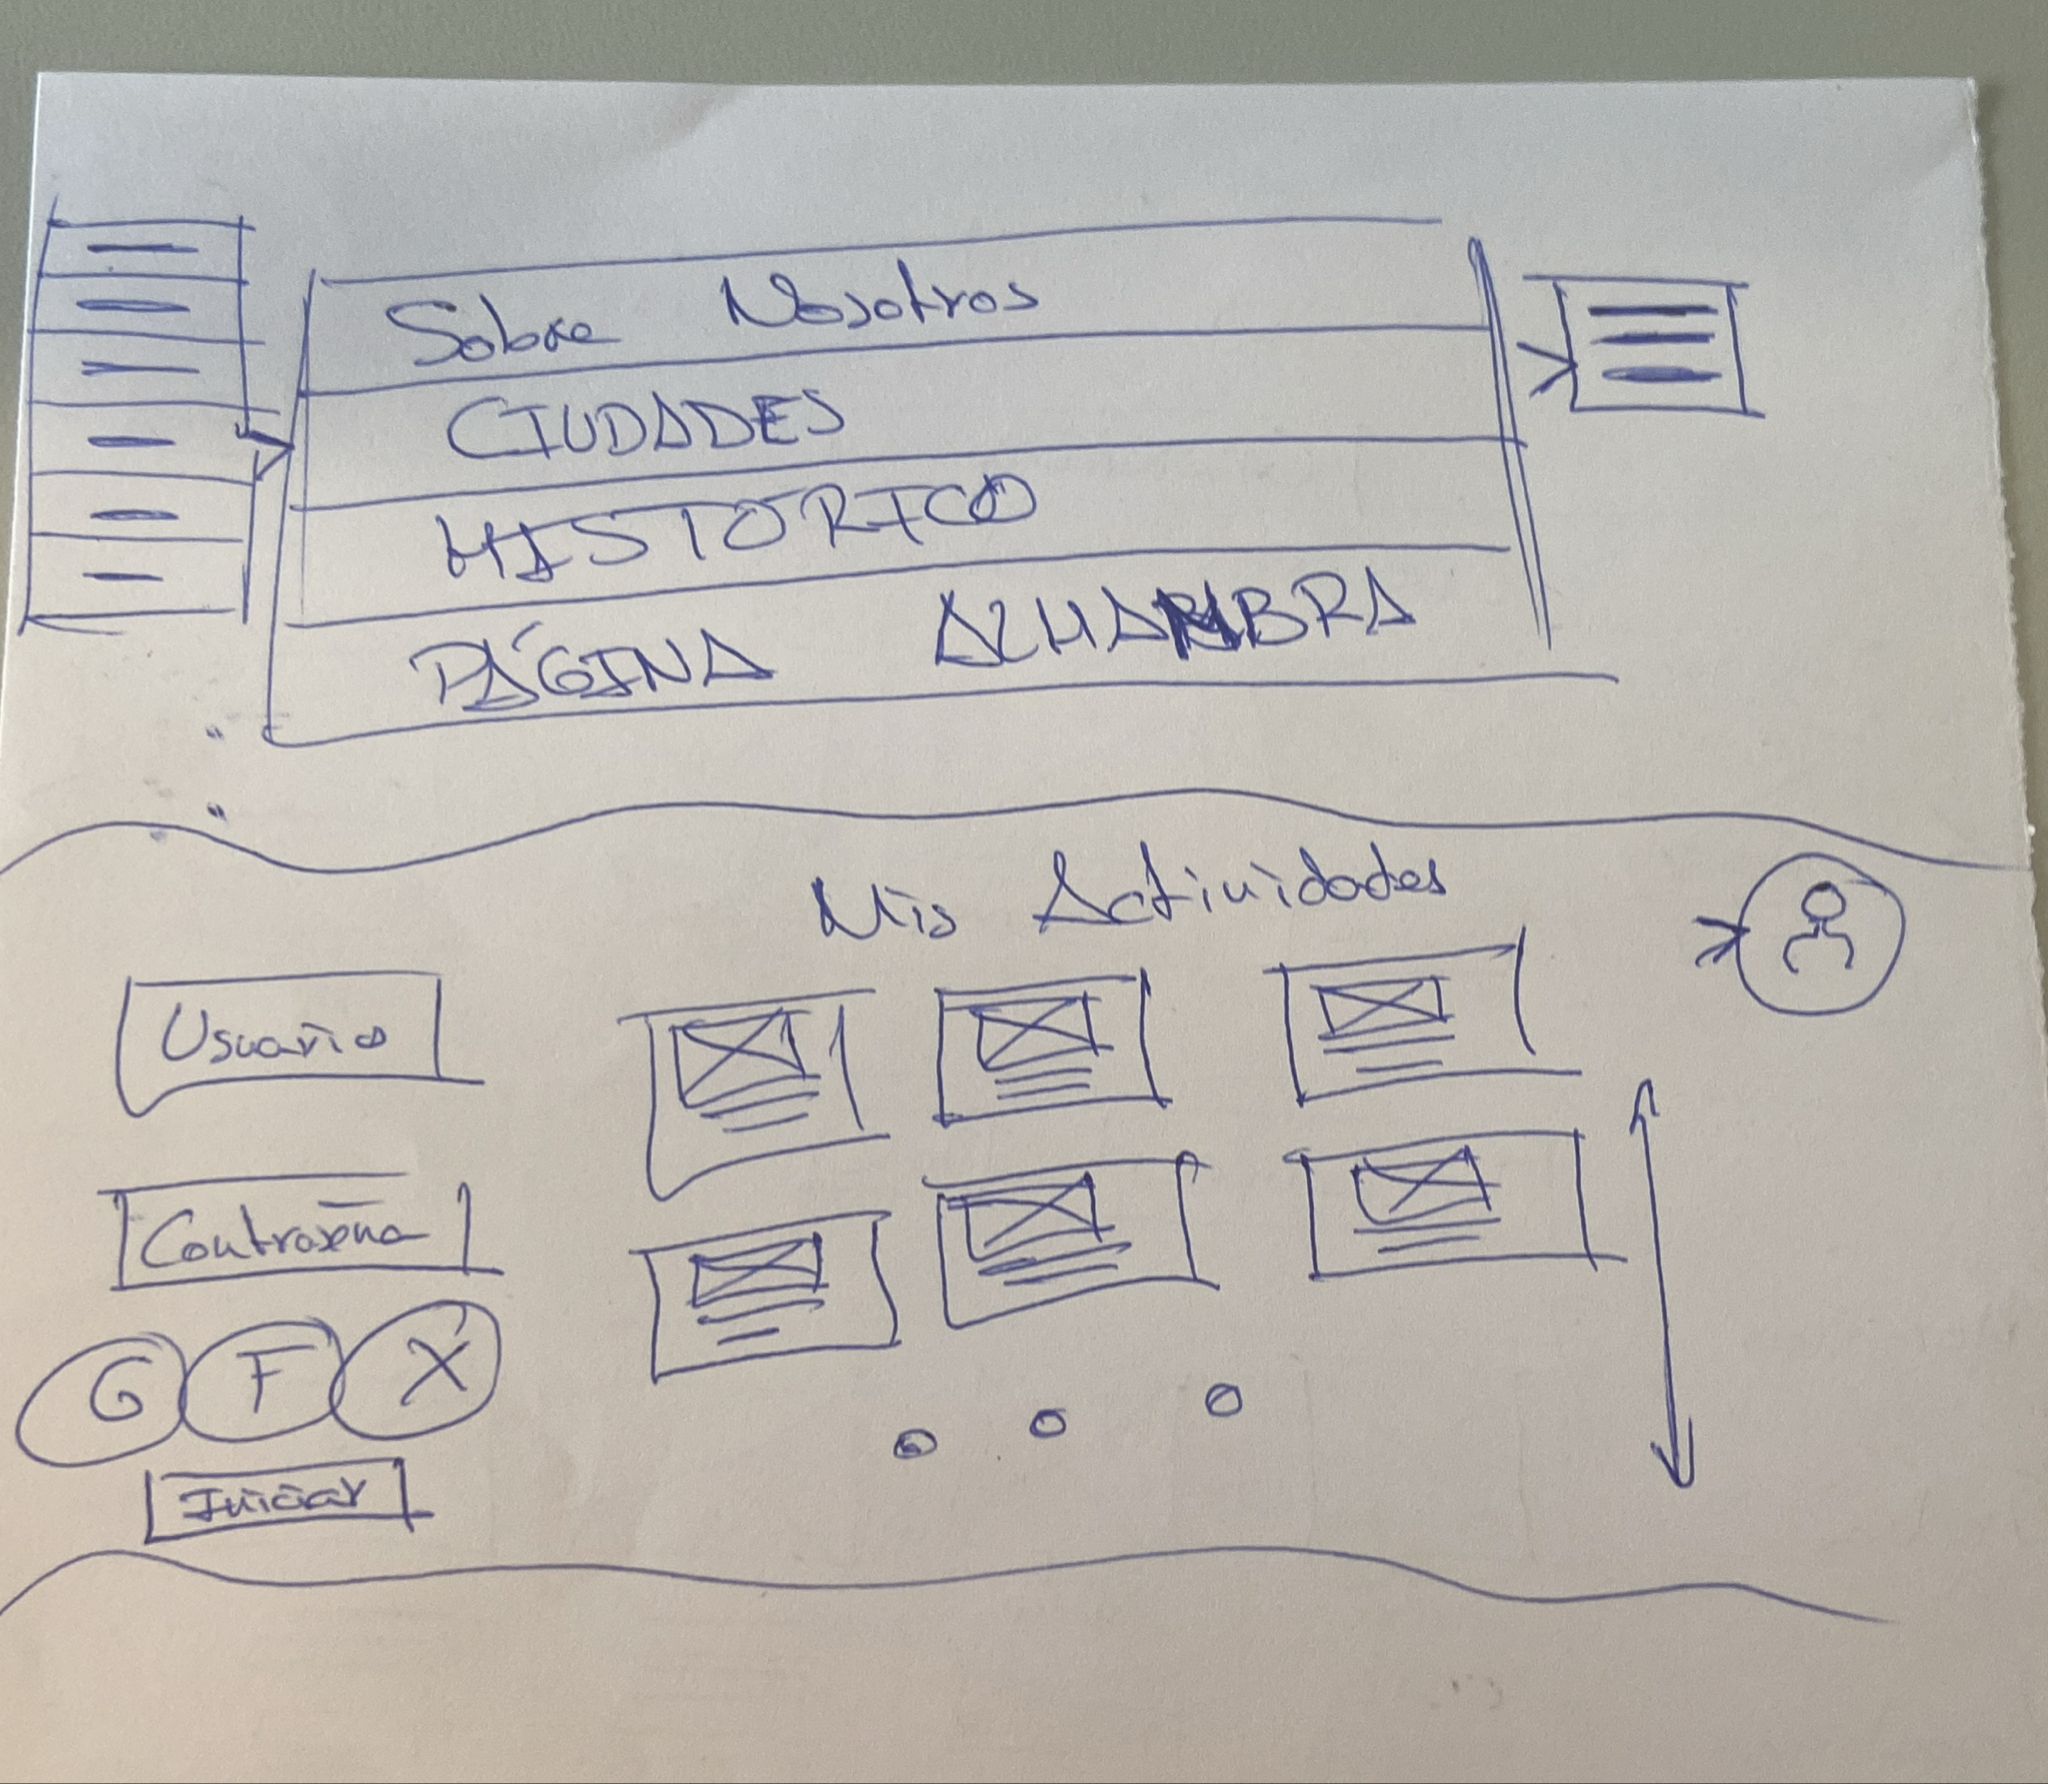 Sobre Nosotros
CIUDADES
HISTORICO
PÁGINA ALHAMBRA
Mis Actividades
Usuario
Contraseña
G F X
Iniciar